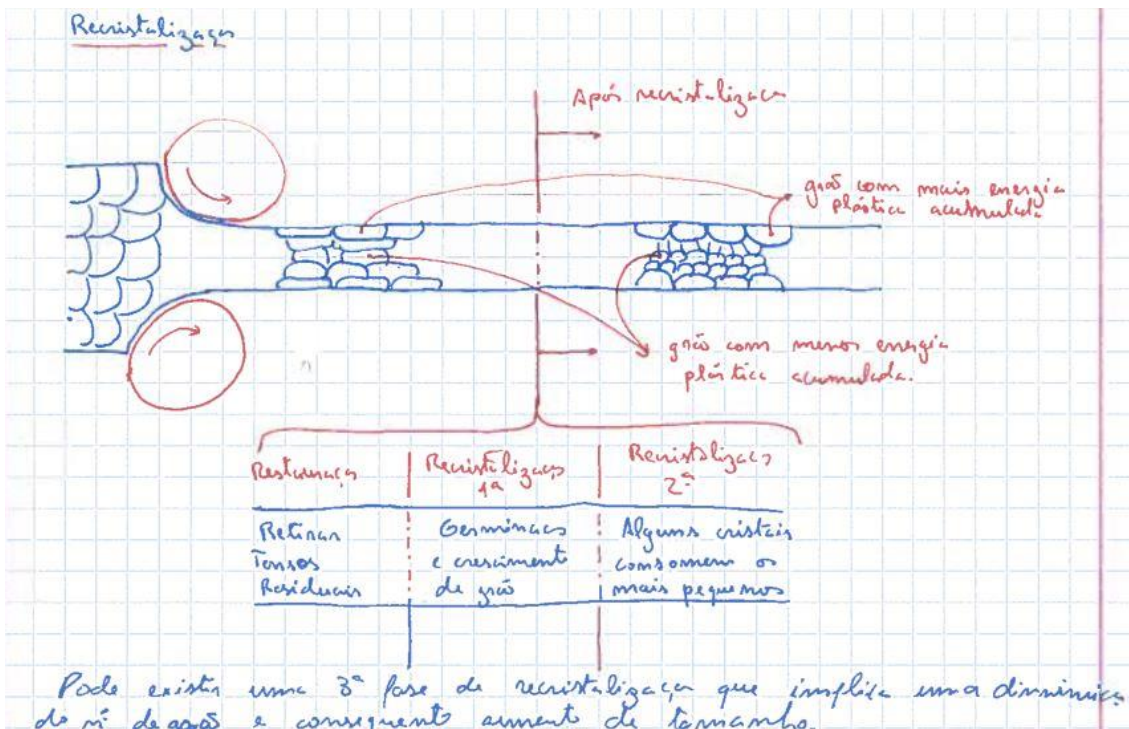 Recristalização
Após recristalização
grão com mais energia
plástica acumulada
grão com menos energia
plástica acumulada.
Restauração
Recristalização
1ª
Recristalização
2ª
Retirar
Tensões
Residuais
Germinação
e crescimento
de grão
Alguns cristais
consomem os
mais pequenos
Pode existir uma 3ª fase de recristalização que implica uma diminuição
do nº de grão e consequente aumento de tamanho.